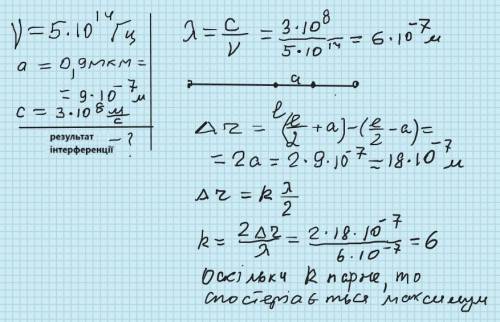 ν = 5·10¹⁴ Гц
a = 0,9 мкм =
= 9·10⁻⁷ м
c = 3·10⁸ м/c
результат
інтерференції – ?
λ = c/ν = 3·10⁸/5·10¹⁴ = 6·10⁻⁷ м
a
l
Δr = (l/2 + a) – (l/2 – a) =
= 2a = 2·9·10⁻⁷ = 18·10⁻⁷ м
Δr = k λ/2
k = 2Δr/λ = 2·18·10⁻⁷/6·10⁻⁷ = 6
Оскільки k парне, то
спостерігається максимум